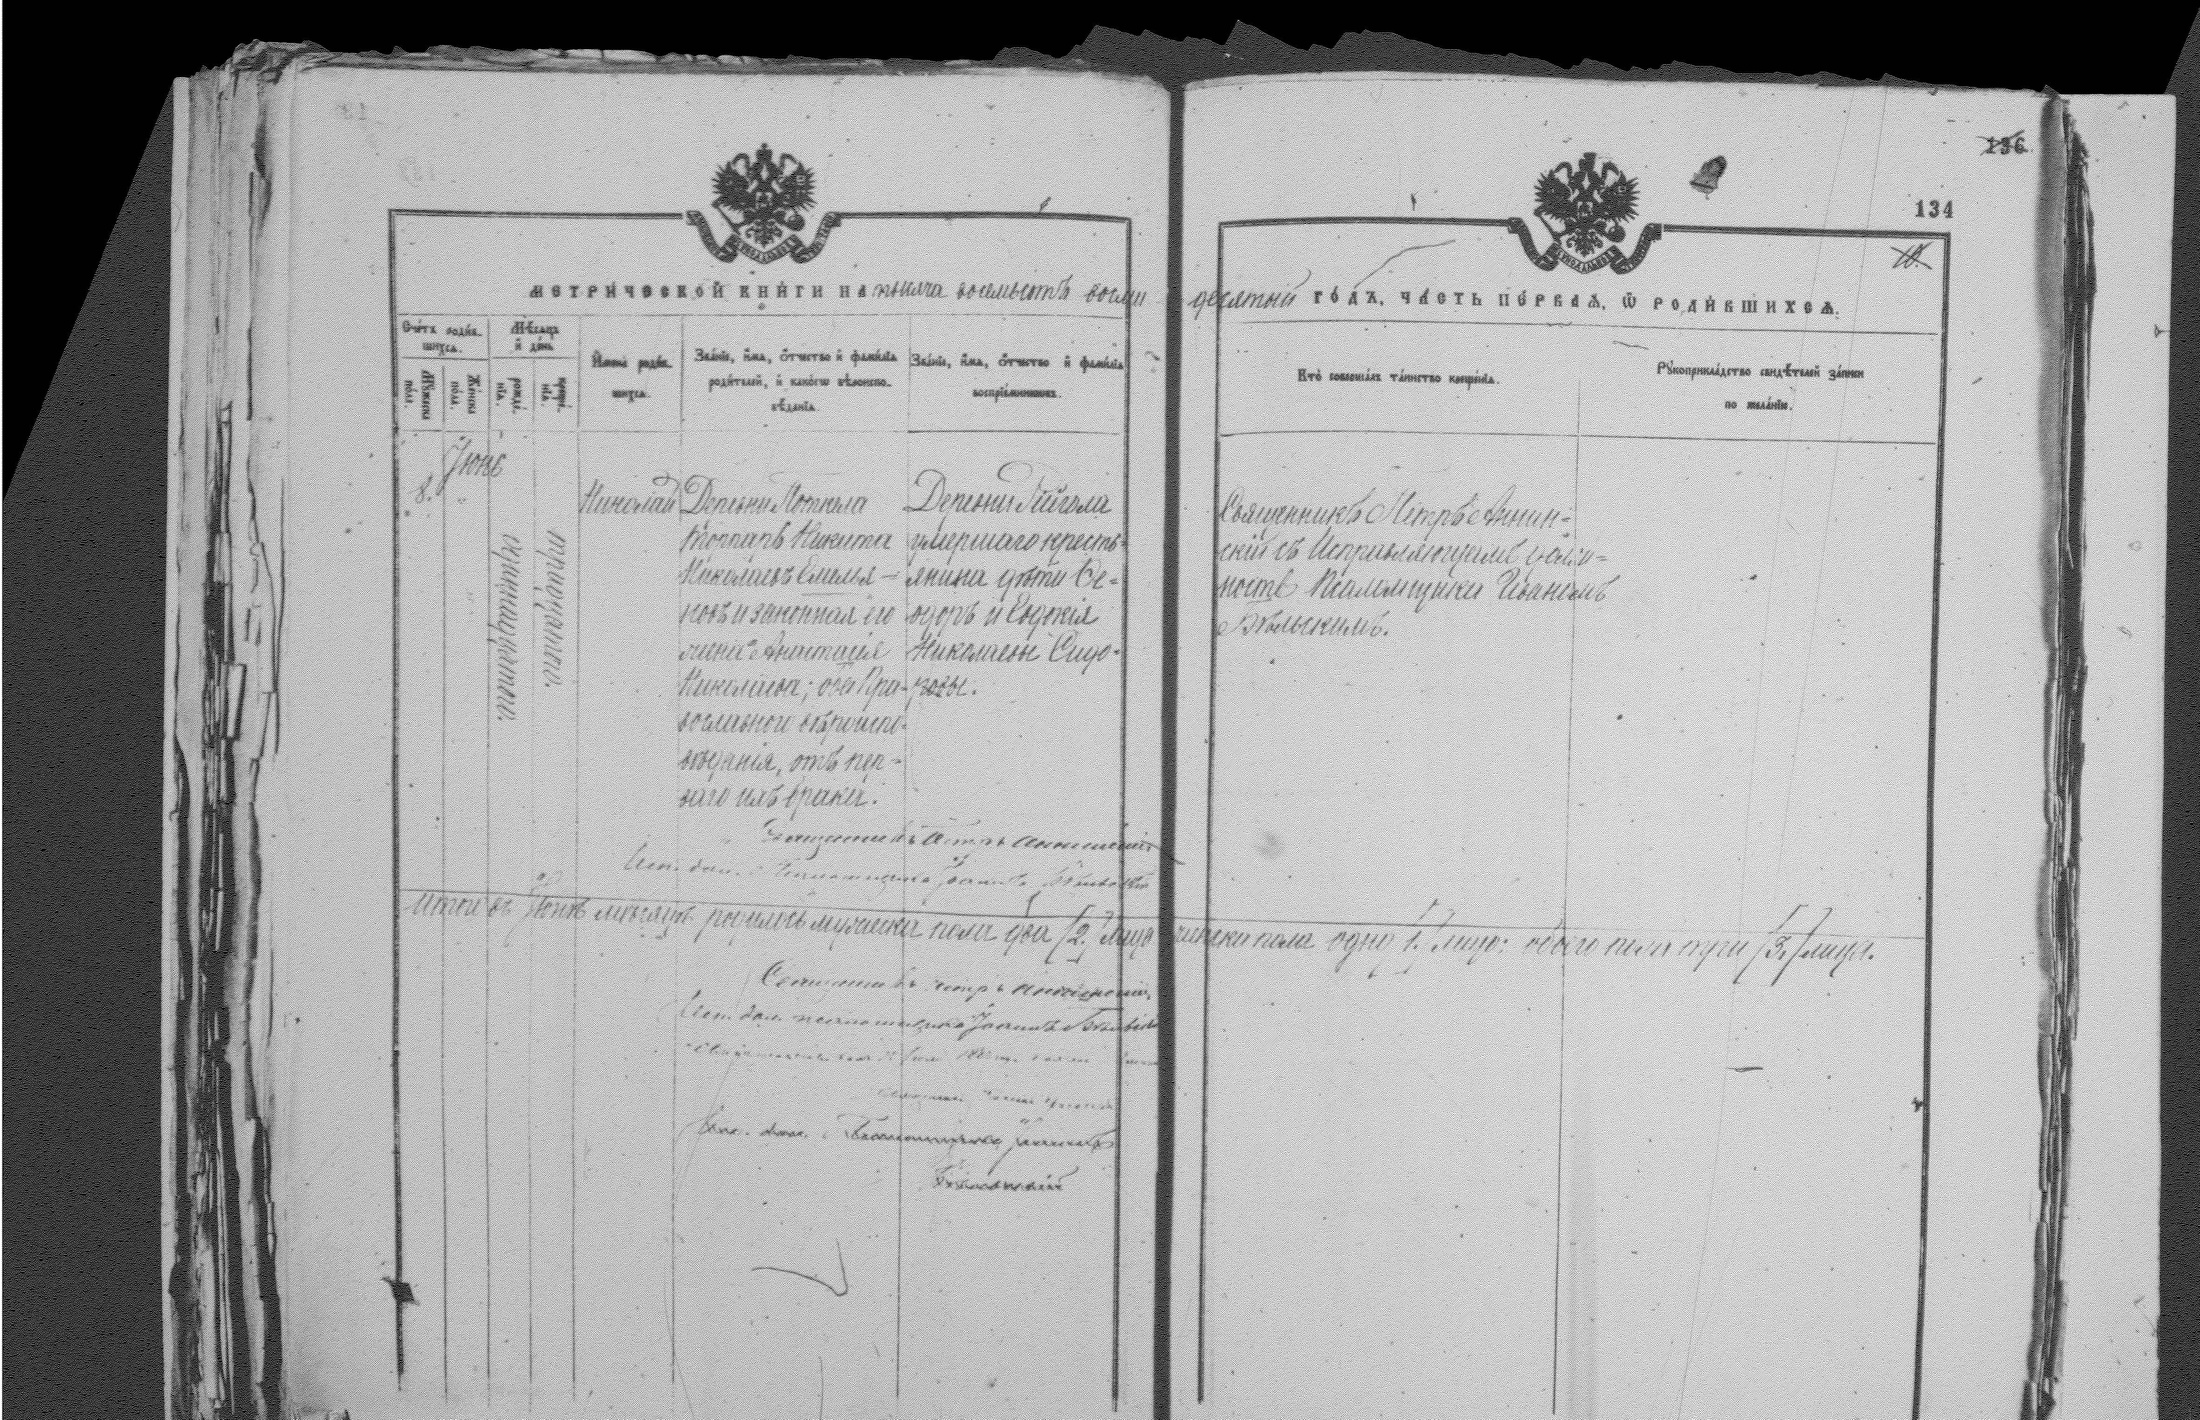 136
134
10.
МЕТРИЧЕСКОЙ КНИГИ НА тысяча восемьсотъ восемь десятый ГОДЪ, ЧАСТЬ ПЕРВАѦ, Ѿ РОДИВШИХСѦ.
Счетъ родившихсѧ.
Мѣсяцъ и день
Имена родившихсѧ.
Званіе, имѧ, отчество и фамиліѧ родителей, и какогѡ вѣроисповѣданіѧ
Званіе, имѧ, отчество и фамиліѧ воспріемниковъ.
Кто совершалъ таинство крещеніѧ.
Рꙋкоприкладство свидѣтелей записи по желанію.
Мꙋжеска пола.
Женска пола.
рожденіѧ.
крещеніѧ.
Іюнь
8.
одиннадцатого.
тринадцатого.
Николай
Деревни
Никита
Николаевъ Емелья-
новъ и законная его
жена Анастасія
Николаева; оба Пра-
вославнои вѣроиспо-
вѣданія, отъ пер-
ваго ихъ брака.
Деревни
умершаго кресть-
янина дѣти Ѳе-
одоръ и Евдокія
Николаевы Сидо-
ровы.
Священникъ Петръ Аннин-
скій съ Исправляющимъ долж-
ность Псаломщика Иваномъ
Бѣльскимъ.
Священникъ Петръ Аннинскій
Исп. дол. Псаломщика Іоаннъ Бѣльскій
Итого въ Іюнѣ мѣсяцѣ родилось мужеска пола два (2.) лица женска пола одно (1.) лицо; обоего пола три (3.) лица.
Священникъ Петръ Аннинскій,
Исп. дол. псаломщика Іоаннъ Бѣльскій
Исп. дол. Псаломщика Іоаннъ
Бѣльскій